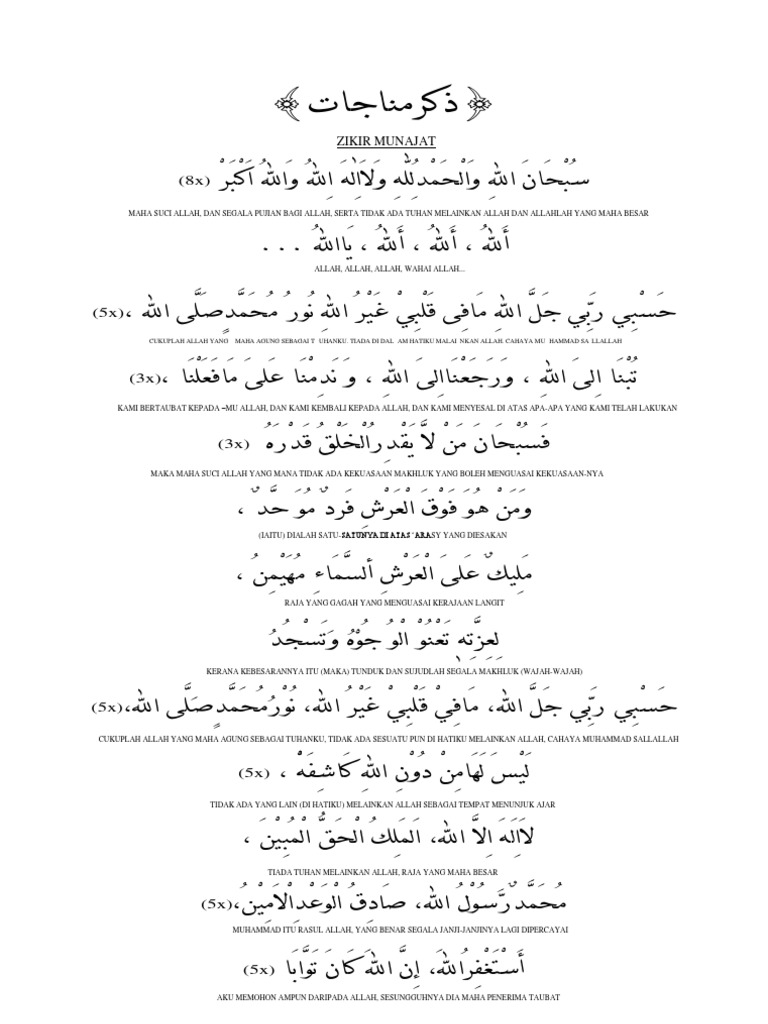 ﴿ ذكرمناجات ﴾
ZIKIR MUNAJAT
سُبْحَانَ اللهِ وَالْحَمْدُلِلّٰهِ وَلَااِلٰهَ اِلاَّ اللهُ وَاللهُ اَكْبَرْ (8x)
MAHA SUCI ALLAH, DAN SEGALA PUJIAN BAGI ALLAH, SERTA TIDAK ADA TUHAN MELAINKAN ALLAH DAN ALLAHLAH YANG MAHA BESAR
أَللهُ ، أَللهُ ، أَللهُ ، يَااللهُ . . .
ALLAH, ALLAH, ALLAH, WAHAI ALLAH...
حَسْبِي رَبِّي جَلَّ اللهِ مَافِى قَلْبِيْ غَيْرُ اللهِ نُورُ مُحَمَّدٍصَلَّى الله ،(5x)
CUKUPLAH ALLAH YANG MAHA AGUNG SEBAGAI T UHANKU. TIADA DI DAL AM HATIKU MALAI NKAN ALLAH. CAHAYA MU HAMMAD SA LLALLAH
تُبْنَا اِلىَ اللهِ ، وَرَجَعْنَااِلىَ اللهِ ، وَ نَدِمْنَا عَلىَ مَافَعَلْنَا ،(3x)
KAMI BERTAUBAT KEPADA –MU ALLAH, DAN KAMI KEMBALI KEPADA ALLAH, DAN KAMI MENYESAL DI ATAS APA-APA YANG KAMI TELAH LAKUKAN
فَسُبْحَانَ مَنْ لاَّ يَقْدِرِالْخَلْقُ قَدْرَهُ (3x)
MAKA MAHA SUCI ALLAH YANG MANA TIDAK ADA KEKUASAAN MAKHLUK YANG BOLEH MENGUASAI KEKUASAAN-NYA
وَمَنْ هُو فَوْقَ الْعَرْشِ فَرْدٌ مُوَحَّدٌ ،
(IAITU) DIALAH SATU-SATUNYA DI ATAS `ARASY YANG DIESAKAN
مَلِيكٌ عَلىَ الْعَرْشِ أَلسَّمَاءِ مُهَيْمِنُ ،
RAJA YANG GAGAH YANG MENGUASAI KERAJAAN LANGIT
لِعِزَّتِهِ تَعْنُو الْوُجُوْهُ وَتَسْجُدُ
KERANA KEBESARANNYA ITU (MAKA) TUNDUK DAN SUJUDLAH SEGALA MAKHLUK (WAJAH-WAJAH)
حَسْبِي رَبِّي جَلَّ اللهُ، مَافِيْ قَلْبِيْ غَيْرُ اللهُ، نُوْرُمُحَمَّدٍصَلَّى الله،(5x)
CUKUPLAH ALLAH YANG MAHA AGUNG SEBAGAI TUHANKU, TIDAK ADA SESUATU PUN DI HATIKU MELAINKAN ALLAH, CAHAYA MUHAMMAD SALLALLAH
لَيْسَ لَهَامِنْ دُوْنِ اللهِ كَاشِفَهْ ، (5x)
TIDAK ADA YANG LAIN (DI HATIKU) MELAINKAN ALLAH SEBAGAI TEMPAT MENUNJUK AJAR
لَااِلَهَ اِلاَّ الله، الْمَلِكُ الْحَقُّ الْمُبِيْنَ ،
TIADA TUHAN MELAINKAN ALLAH, RAJA YANG MAHA BESAR
مُحَمَّدٌ رَّسُوْلُ الله، صَادِقُ الْوَعْدِالْاَمِيْنُ،(5x)
MUHAMMAD ITU RASUL ALLAH, YANG BENAR SEGALA JANJI-JANJINYA LAGI DIPERCAYAI
أَسْتَغْفِرُاللهَ، اِنَّ اللهَ كَانَ تَوَّابَا (5x)
AKU MEMOHON AMPUN DARIPADA ALLAH, SESUNGGUHNYA DIA MAHA PENERIMA TAUBAT